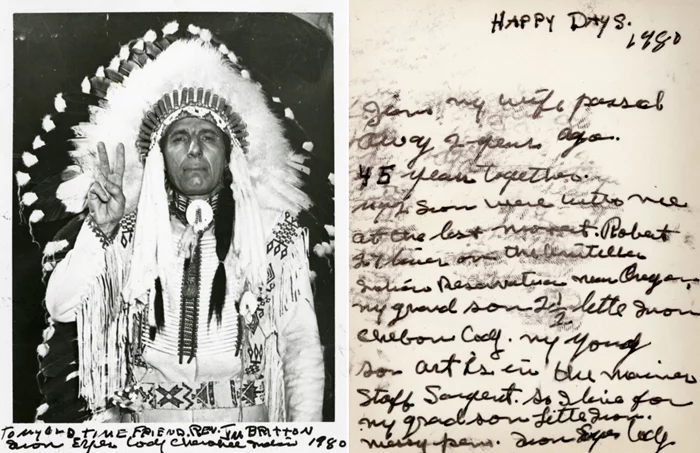 TO MY OLD TIME FRIEND. REV. JIM BRITTON
Iron Eyes Cody Cherokee Indian 1980
HAPPY DAYS.
1980
my wife passed
away 2 years ago.
45 years together.
my 2 sons were with me
at the last moment. Robert
on the
Indian Reservation near Oregon,
my grand son 2 1/2 little Iron
Cody. my young
son Art is in the
Staff Sargent. so I live for
my grandson little Iron.
Iron Eyes Cody